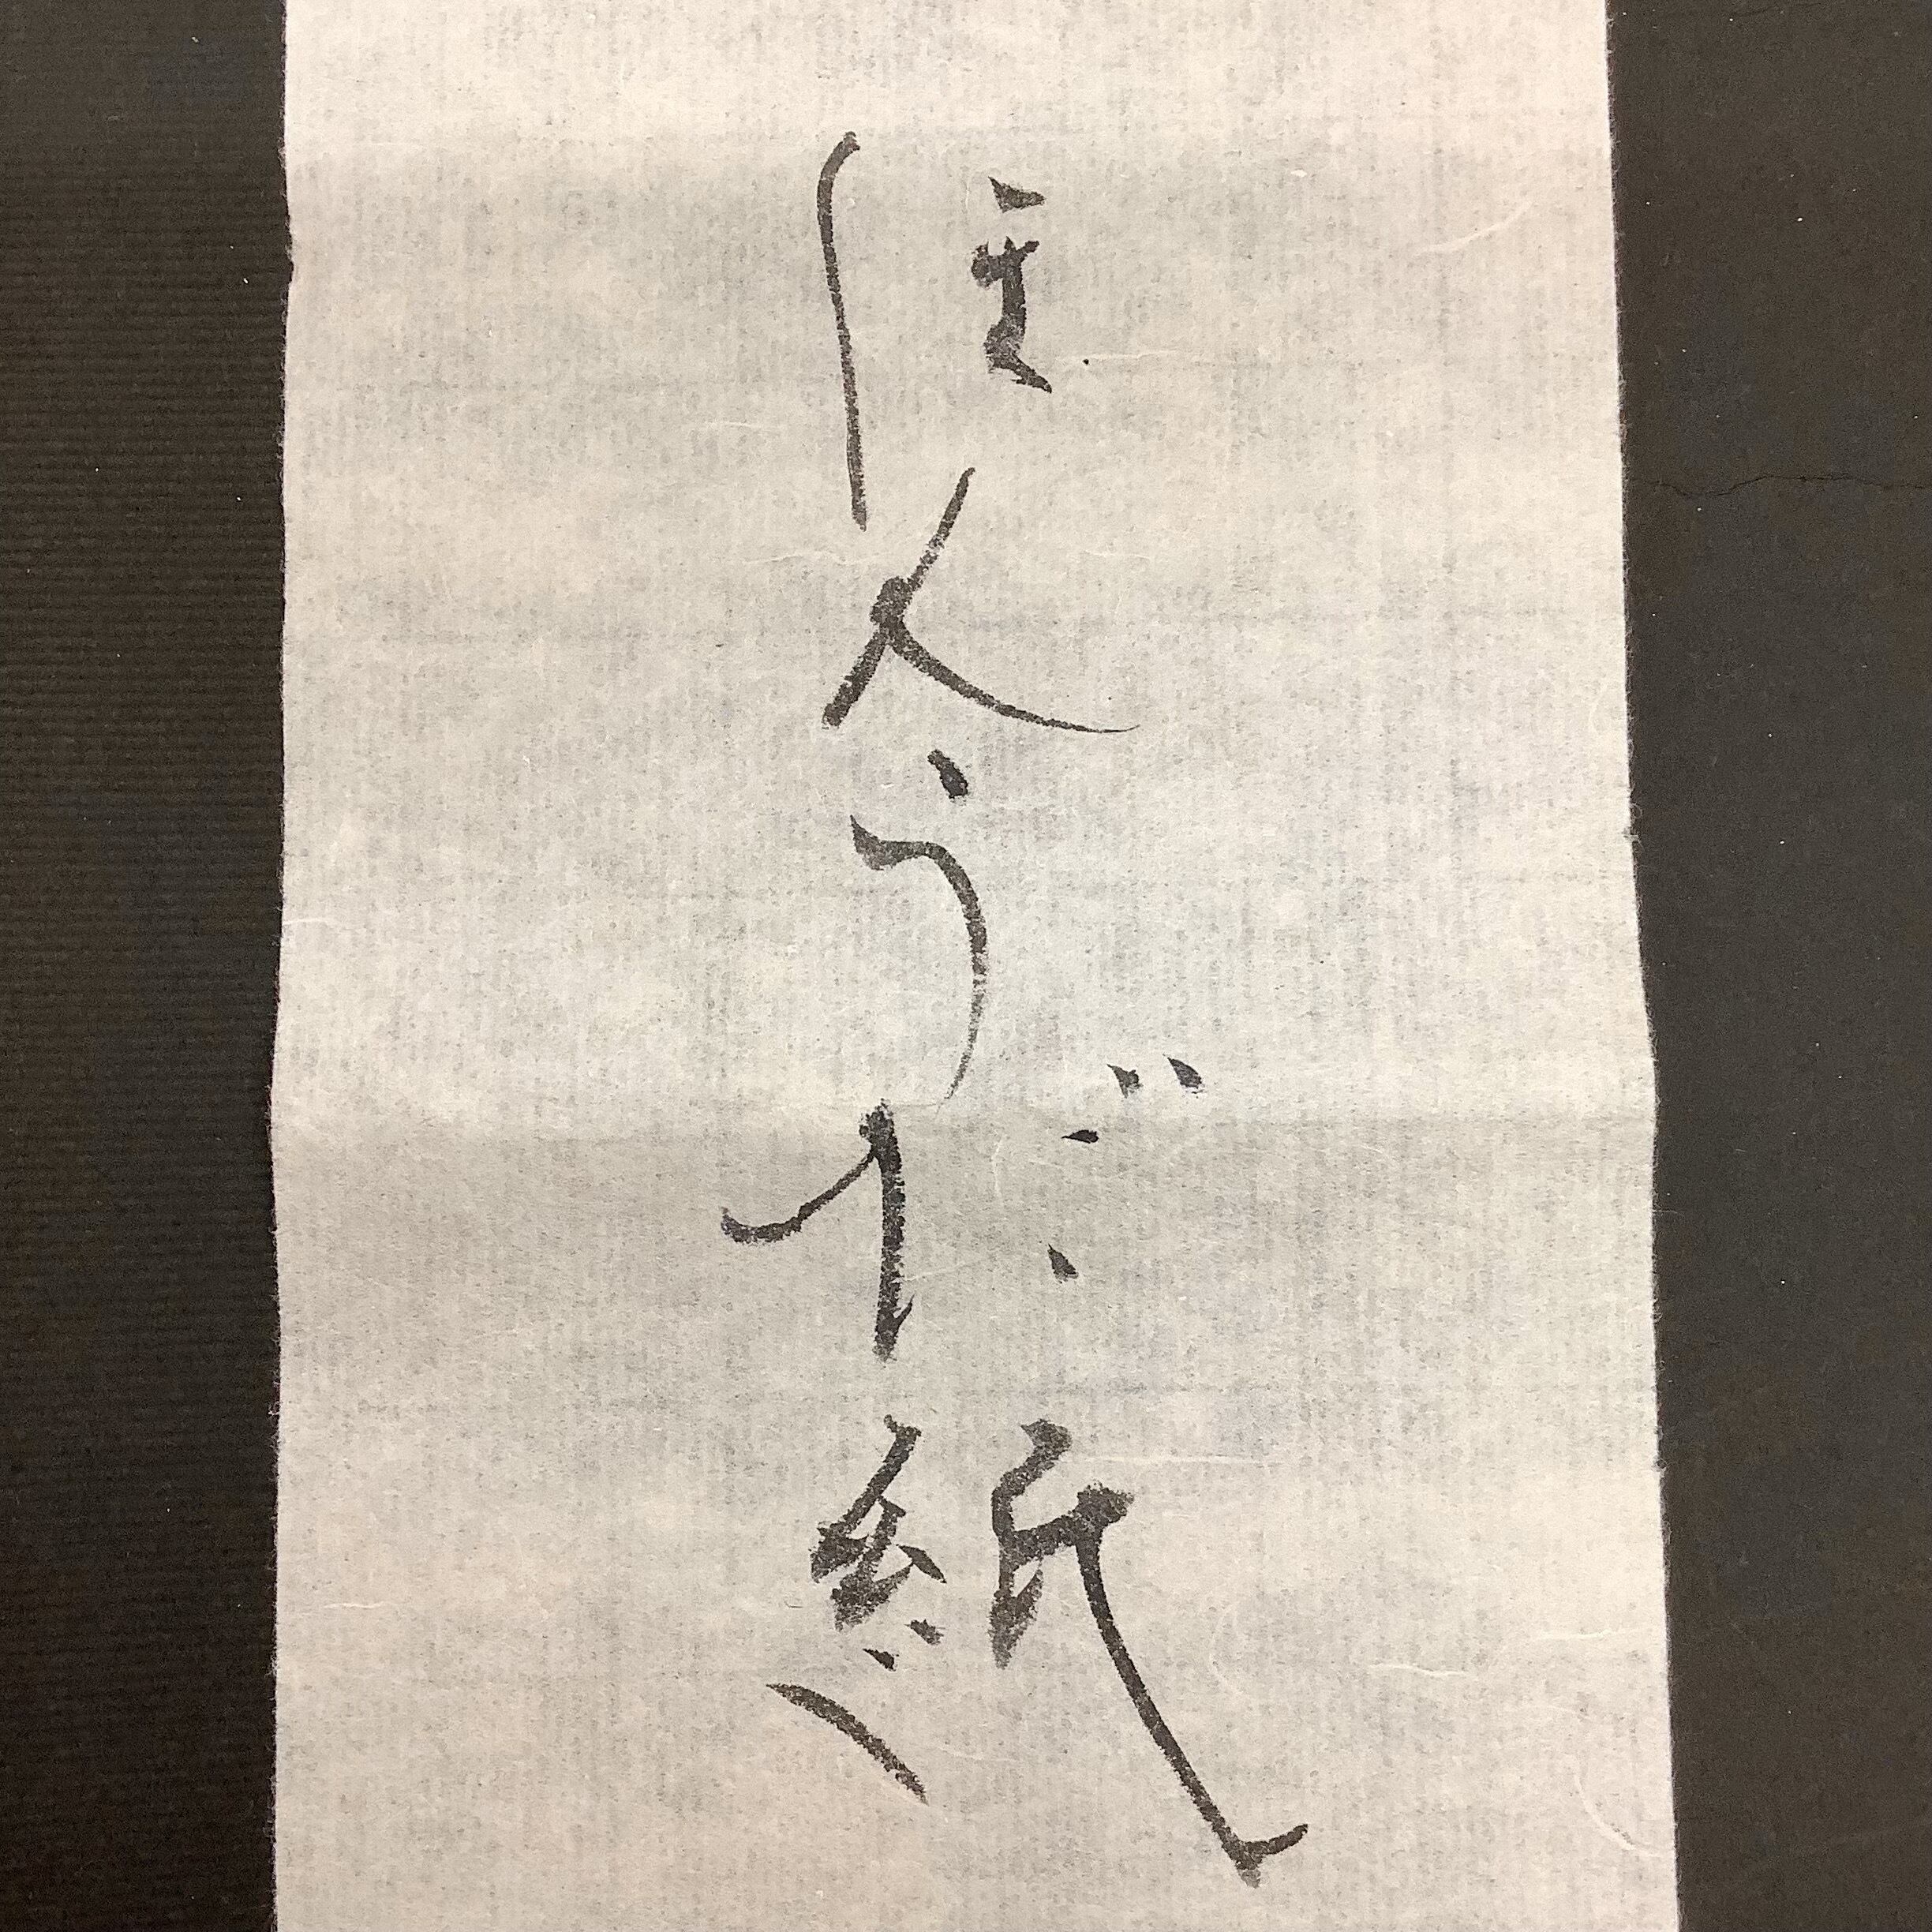 ほんうだ紙